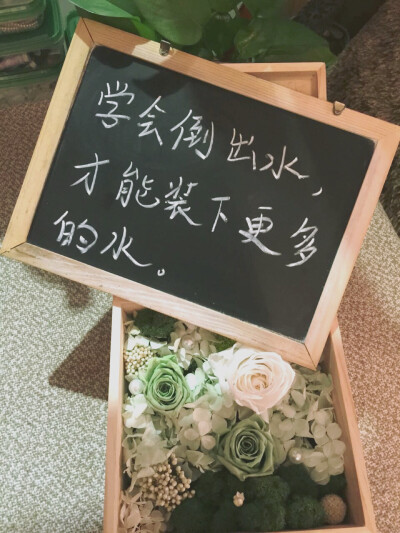 学会倒出水，
才能装下更多
的水。